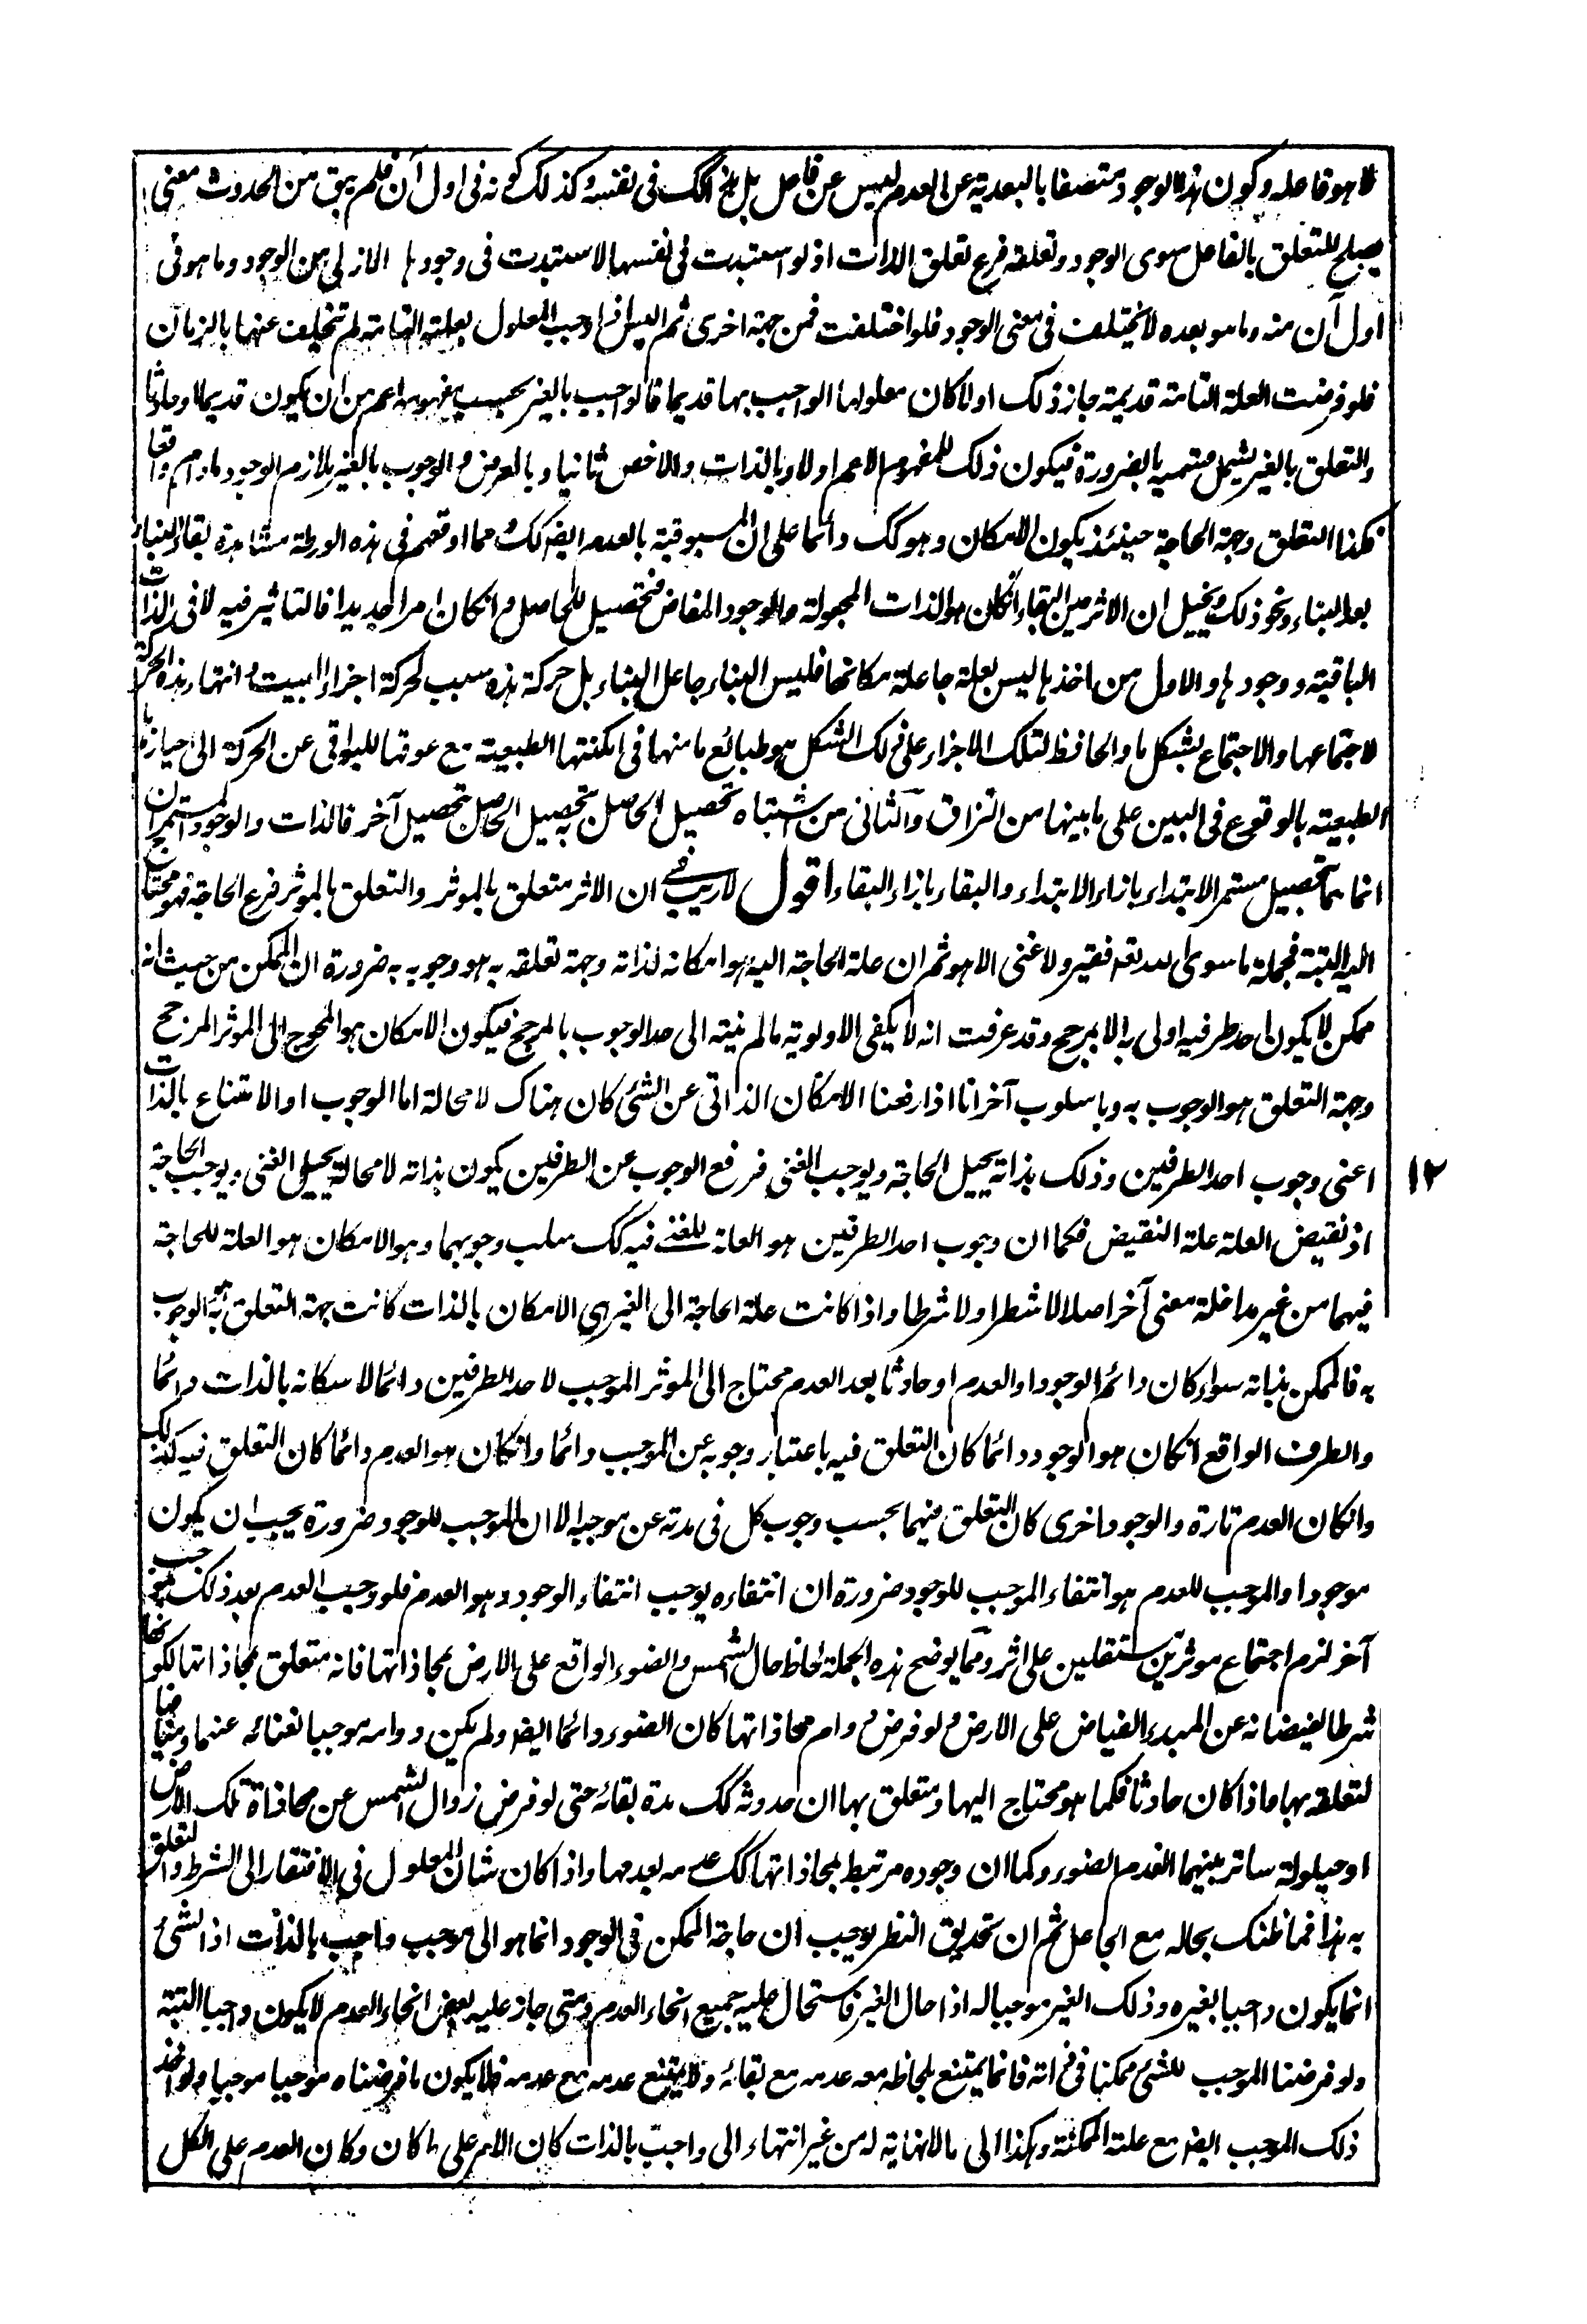 لا هو فاعله وكون هذا الوجود متصفا بالبعدية عن العدم ليس عن فاعل بل هو كك فى نفسه وكذلك كونه فى اول آن فلم يبق من الحدوث معنى
يصلح للتعلق بالفاعل سوى الوجود وتعلقه فرع تعلق الذات اذ لو استبدت فى نفسها لاستبدت فى وجودها الازلى من الوجود وما هو فى
اول آن منه وما هو بعده لا يختلف فى معنى الوجود فلو اختلفت فمن جهة اخرى ثم اليس اذا وجب المعلول بعلته التامة لم تتخلف عنها بالزمان
فلو فرضت العلة التامة قديمة جاز ذلك اولا كان معلولها الواجب بها قديما فالواجب بالغير بحسب مفهومه اعم من ان يكون قديما او حادثا
والتعلق بالغير يشمل قسميه بالضرورة فيكون ذلك للمفهوم الاعم اولا وبالذات وللاخص ثانيا وبالعرض والوجوب بالغير يلازم الوجود مادام واقعا
فكذا التعلق وجهة الحاجة حينئذ يكون الامكان وهو كك دائما على ان المسبوقية بالعدم ايضا كك مما اوقعهم فى هذه الورطة مشاهدة بقاء البناء
بعد البناء ونحو ذلك وتخييل ان الاثر حين البقاء ان كان هو الذات المجعولة والوجود المفاض فتحصيل للحاصل وان كان امرا جديدا فالتاثير فيه لا فى الذات
الباقية ووجودها والاول من اخذ ما ليس بعلة جاعلة مكانها فليس البناء جاعل البناء بل حركة يده سبب لحركة اجزاء البيت وانتهاء هذه الحركة
لاجتماعها والاجتماع بشكل ما والحافظ لتلك الاجزاء على ذلك الشكل هو طبائع ما منها فى امكنتها الطبيعية مع عوقها للبواقى عن الحركة الى احيازها
الطبيعية بالوقوع فى البين على ما بينها من التزاق والثانى من اشتباه تحصيل الحاصل بتحصيل الحاصل به تحصيل آخر فالذات والوجود المستمران
انما هما بتحصيل مستمر الابتداء بازاء الابتداء والبقاء بازاء البقاء اقول لا ريب فى ان الاثر متعلق بالموثر والتعلق بالموثر فرع الحاجة فهو محتاج
اليه البتة فجملة ما سوى الله تعه فقير ولا غنى الا هو ثم ان علة الحاجة اليه هو امكانه لذاته وجهة تعلقه به هو وجوبه به ضرورة ان الممكن من حيث انه
ممكن لا يكون احد طرفيه اولى به الا بمرجح وقد عرفت انه لا يكفى الاولوية ما لم ينته الى حد الوجوب بالمرجح فيكون الامكان هو المحوج الى الموثر المرجح
وجهة التعلق هو الوجوب به وباسلوب آخر انا اذا رفعنا الامكان الذاتى عن الشئ كان هناك لا محالة اما الوجوب او الامتناع بالذات
اعنى وجوب احد الطرفين وذلك بذاته يحيل الحاجة ويوجب الغنى فرفع الوجوب عن الطرفين يكون بذاته لا محالة يحيل الغنى ويوجب الحاجة
اذ نقيض العلة علة النقيض فكما ان وجوب احد الطرفين هو العلة للغنى فيه كك سلب وجوبهما وهو الامكان هو العلة للحاجة
فيهما من غير مداخلة معنى آخر اصلا لا شطرا ولا شرطا واذا كانت علة الحاجة الى الغير هى الامكان بالذات كانت جهة التعلق به هو الوجوب
به فالممكن بذاته سواء كان دائم الوجود او العدم او حادثا بعد العدم محتاج الى الموثر الموجب لاحد الطرفين دائما لامكانه بالذات دائما
والطرف الواقع ان كان هو الوجود دائما كان التعلق فيه باعتبار وجوبه عن الموجب دائما وان كان هو العدم دائما كان التعلق فيه كذلك
وان كان العدم تارة والوجود اخرى كان التعلق فيهما بحسب وجوب كل فى مدته عن موجبه الا ان الموجب للوجود ضرورة يجب ان يكون
موجودا والموجب للعدم هو انتفاء الموجب للوجود ضرورة ان انتفاءه يوجب انتفاء الوجود وهو العدم فلو وجب العدم بعد ذلك بموجب
آخر لزم اجتماع موثرين مستقلين على اثر ومما يوضح هذه الجملة لحاظ حال الشمس والضوء الواقع على الارض بمحاذاتها فانه متعلق بمحاذاتها لكونها
شرطا لفيضانه عن المبدء الفياض على الارض ولو فرض دوام محاذاتها كان الضوء دائما ايضا ولم يكن دوامه موجبا لغنائه عنها ومنافيا
لتعلقه بها واذا كان حادثا فكما هو محتاج اليها ومتعلق بها ان حدوثه كك مدة بقائه حتى لو فرض زوال الشمس عن محاذاة تلك الارض
او حيلولة ساتر بينهما انعدم الضوء وكما ان وجوده مرتبط بمحاذاتها كك عدمه بعدمها واذا كان شان المعلول فى الافتقار الى الشرط والتعلق
به هذا فما ظنك بحاله مع الجاعل ثم ان تحديق النظر يوجب ان حاجة الممكن فى الوجود انما هو الى موجب واجب بالذات اذ الشئ
انما يكون واجبا بغيره وذلك الغير موجبا له اذا حال الغير فاستحال عليه جميع انحاء العدم ومتى جاز عليه بعض انحاء العدم لا يكون واجبا البتة
ولو فرضنا الموجب للشئ ممكنا فى ذاته فانما يمتنع بلحاظه معه عدمه مع بقائه ولا يمتنع عدمه مع عدمه فلا يكون ما فرضناه موجبا موجبا ولو اخذ
ذلك الموجب ايضا مع علته الممكنة وهكذا الى ما لا نهاية له من غير انتهاء الى واجب بالذات كان الامر على ما كان وكان العدم على الكل
١٢